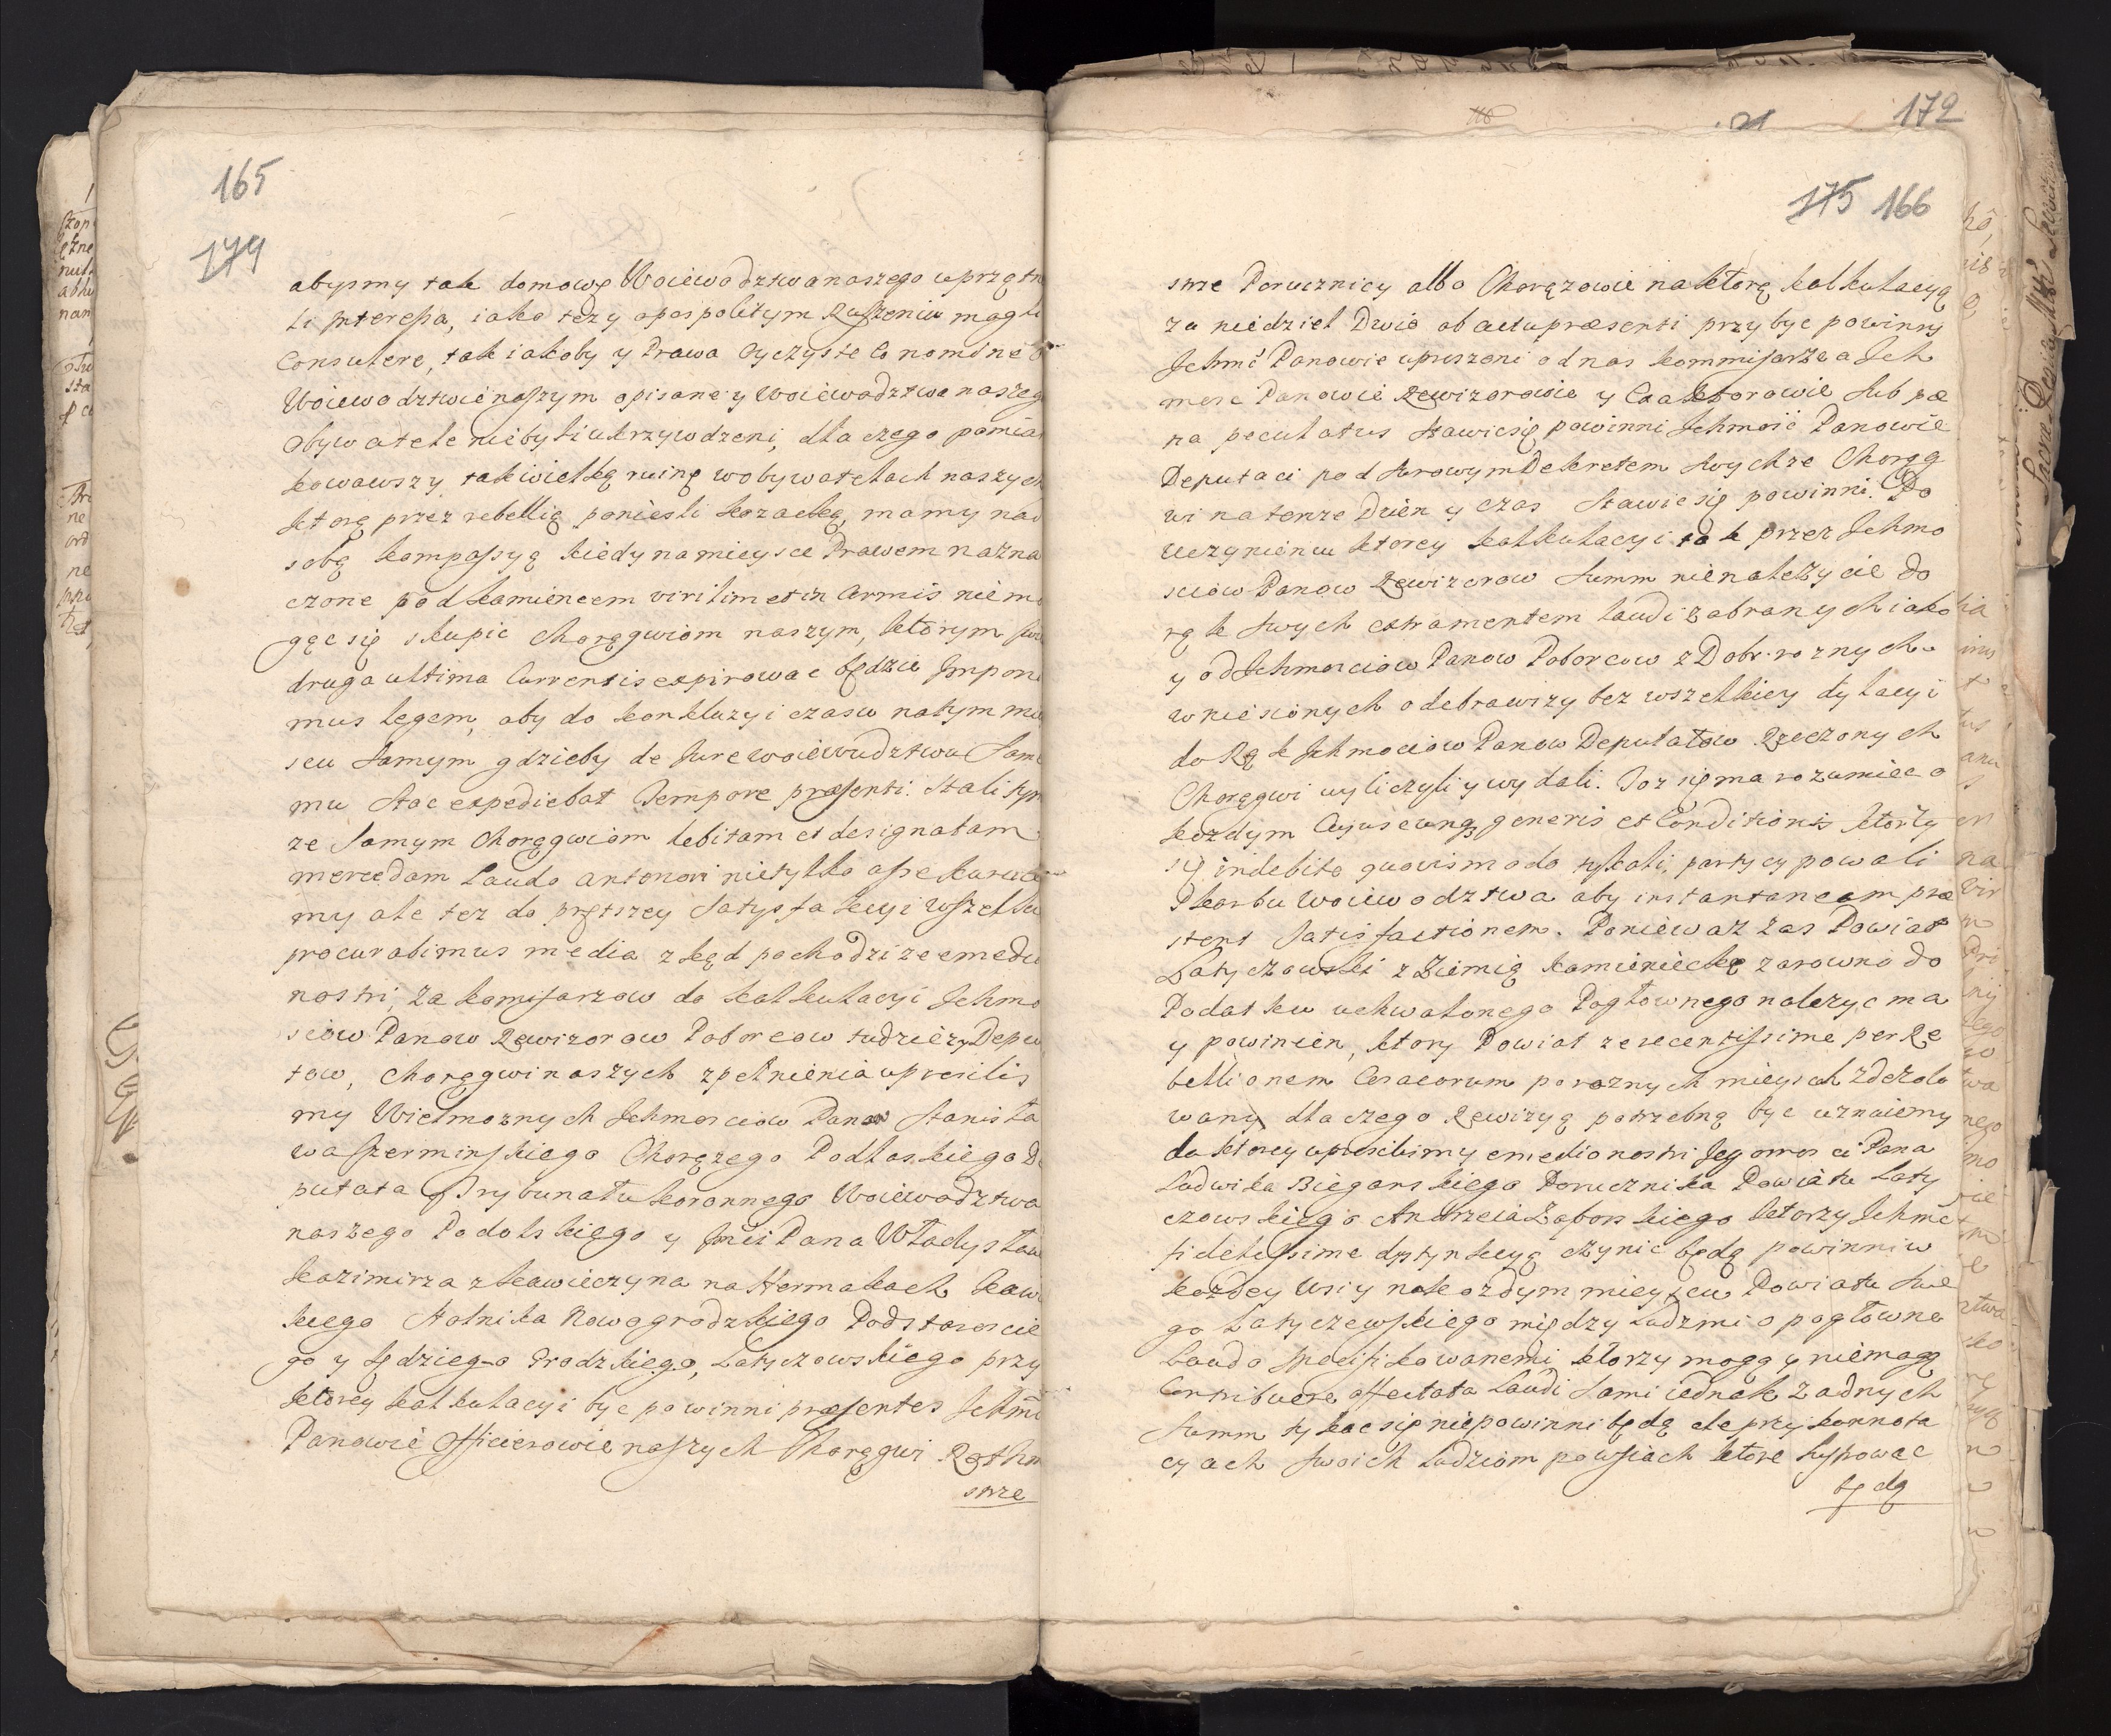 165
179
abysmy tak domowe Woiewodztwa naszego uprzątn
li Interessa, iako tez y o pospolitym Ruszeniu mogli
Consulere, tak iakoby y Prawa Oyczyste Co nomine
Woiewodztwie naszym opisane y Woiewodztwa naszeg
Obywatele niebyli ukrzywdzeni, dla czego pomiar
kowawszy tak wielką ruinę w obywatelach naszych
ktorą przez rebellią poniesli kozacką, mamy nad
sobą kompassyą kiedy na mieysce Prawem nazna
czone pod kamiencem viritim et in Armis niemo
gąc się skupic Chorągwiom naszym, ktorym
druga ultima Currentis expirowac będzie Impone
mus legem, aby do konkluzyi czasu na tym mie
scu samym gdzieby de Jure woiewudztwu Same
mu stac expediebat Tempore præsenti: Stali
ze samym Chorągwiom debitam et designatam
mercedam Laudo antonori nietylko assekuruie
my ale tez do prętszey satysfakcyi wszelkie
procurabimus media zkąd pochodzi ze e medio
nostri, za komisarzow do kalkulacyi Ichmo
sciow Panow Rewizorow Poborcow tudziez y Depu
tow, Chorągwi naszych zpełnienia uprosilis
my Wielmoznych Ichmosciow Panow Stanisła
wa Szerminskiego Chorązego Podlaskiego De
putata Trybunału koronnego Woiewodztwa
naszego Podolskiego y Imci Pana Władysław
kazimirza z kawieczyna na Hermakach kaw
kiego Stolnika Nowogrodzkiego Podstaroscie
go y Sędziego Grodzkiego, Latyczowskiego przy
ktorey kalkulacyi byc powinni præsentes Ichmc
Panowie Officierowie naszych Chorągwi Rothm
strze
172
175 166
strze Porucznicy albo Chorązowie na ktorą kalkulacyą
za niedziel Dwie ab actu præsenti przybyc powinny
Ichmć Panowie uproszeni od nas kommisarze a Ich
mosc Panowie Rewizorowie y Exaktorowie sub pæ
na peculatus stawic się powinni Ichmość Panowie
Deputaci pod surowym Dekretem swychze Chorąg
wi na tenze Dzien y czas stawic się powinni. Do
uczynieniu ktorey kalkulacyi tak przez Ichmo
sciow Panow Rewizorow summ nienalezycie do
rąk swych extra mentem laudi zabranych iako
y od Ichmosciow Panow Poborcow z Dobr roznych
wniesionych odebrawszy bez wszelkiey dylacyi
do Rąk Ichmosciow Panow Deputatow Rzeczonych
Chorągwi wyliczyli y wydali. Toz się ma rozumiec o
kozdym Cujuscunq3 generis et Conditionis ktorzy
się indebito quovis modo tykali, partycypowali
Skarbu Woiewodztwa aby instantaneam præ
stent satisfactionem. Poniewaz zas Powiat
Latyczowski z Ziemią kamieniecką zarowno do
Podatku uchwalonego Pogłownego nalezyc ma
y powinien, ktory Powiat ze recentissime per Re
bellionem Cosacorum po roznych mieyscach zdezolo
wany dla czego Rewizyą potrzebną byc uznaiemy
do ktorey uprosilismy e medio nostri Jegomosci Pana
Ludwika Bieganskiego Porucznika Powiatu Laty
czowskiego Andrzeia Zaborskiego ktorzy Ichmć
fidelissime dystynkcyą czynic będą powinni w
kozdey Wsi y na kozdym mieyscu Powiatu swe
go Latyczewskiego między Ludzmi o pogłowne
Laudo specifikowanemi, ktorzy mogą y niemogą
Contribuere affectata Laudi sami iednak zadnych
summ tykac się niepowinni będą ale przy konnota
cyach swoich Ludziom po wsiach ktore spisowac
będą